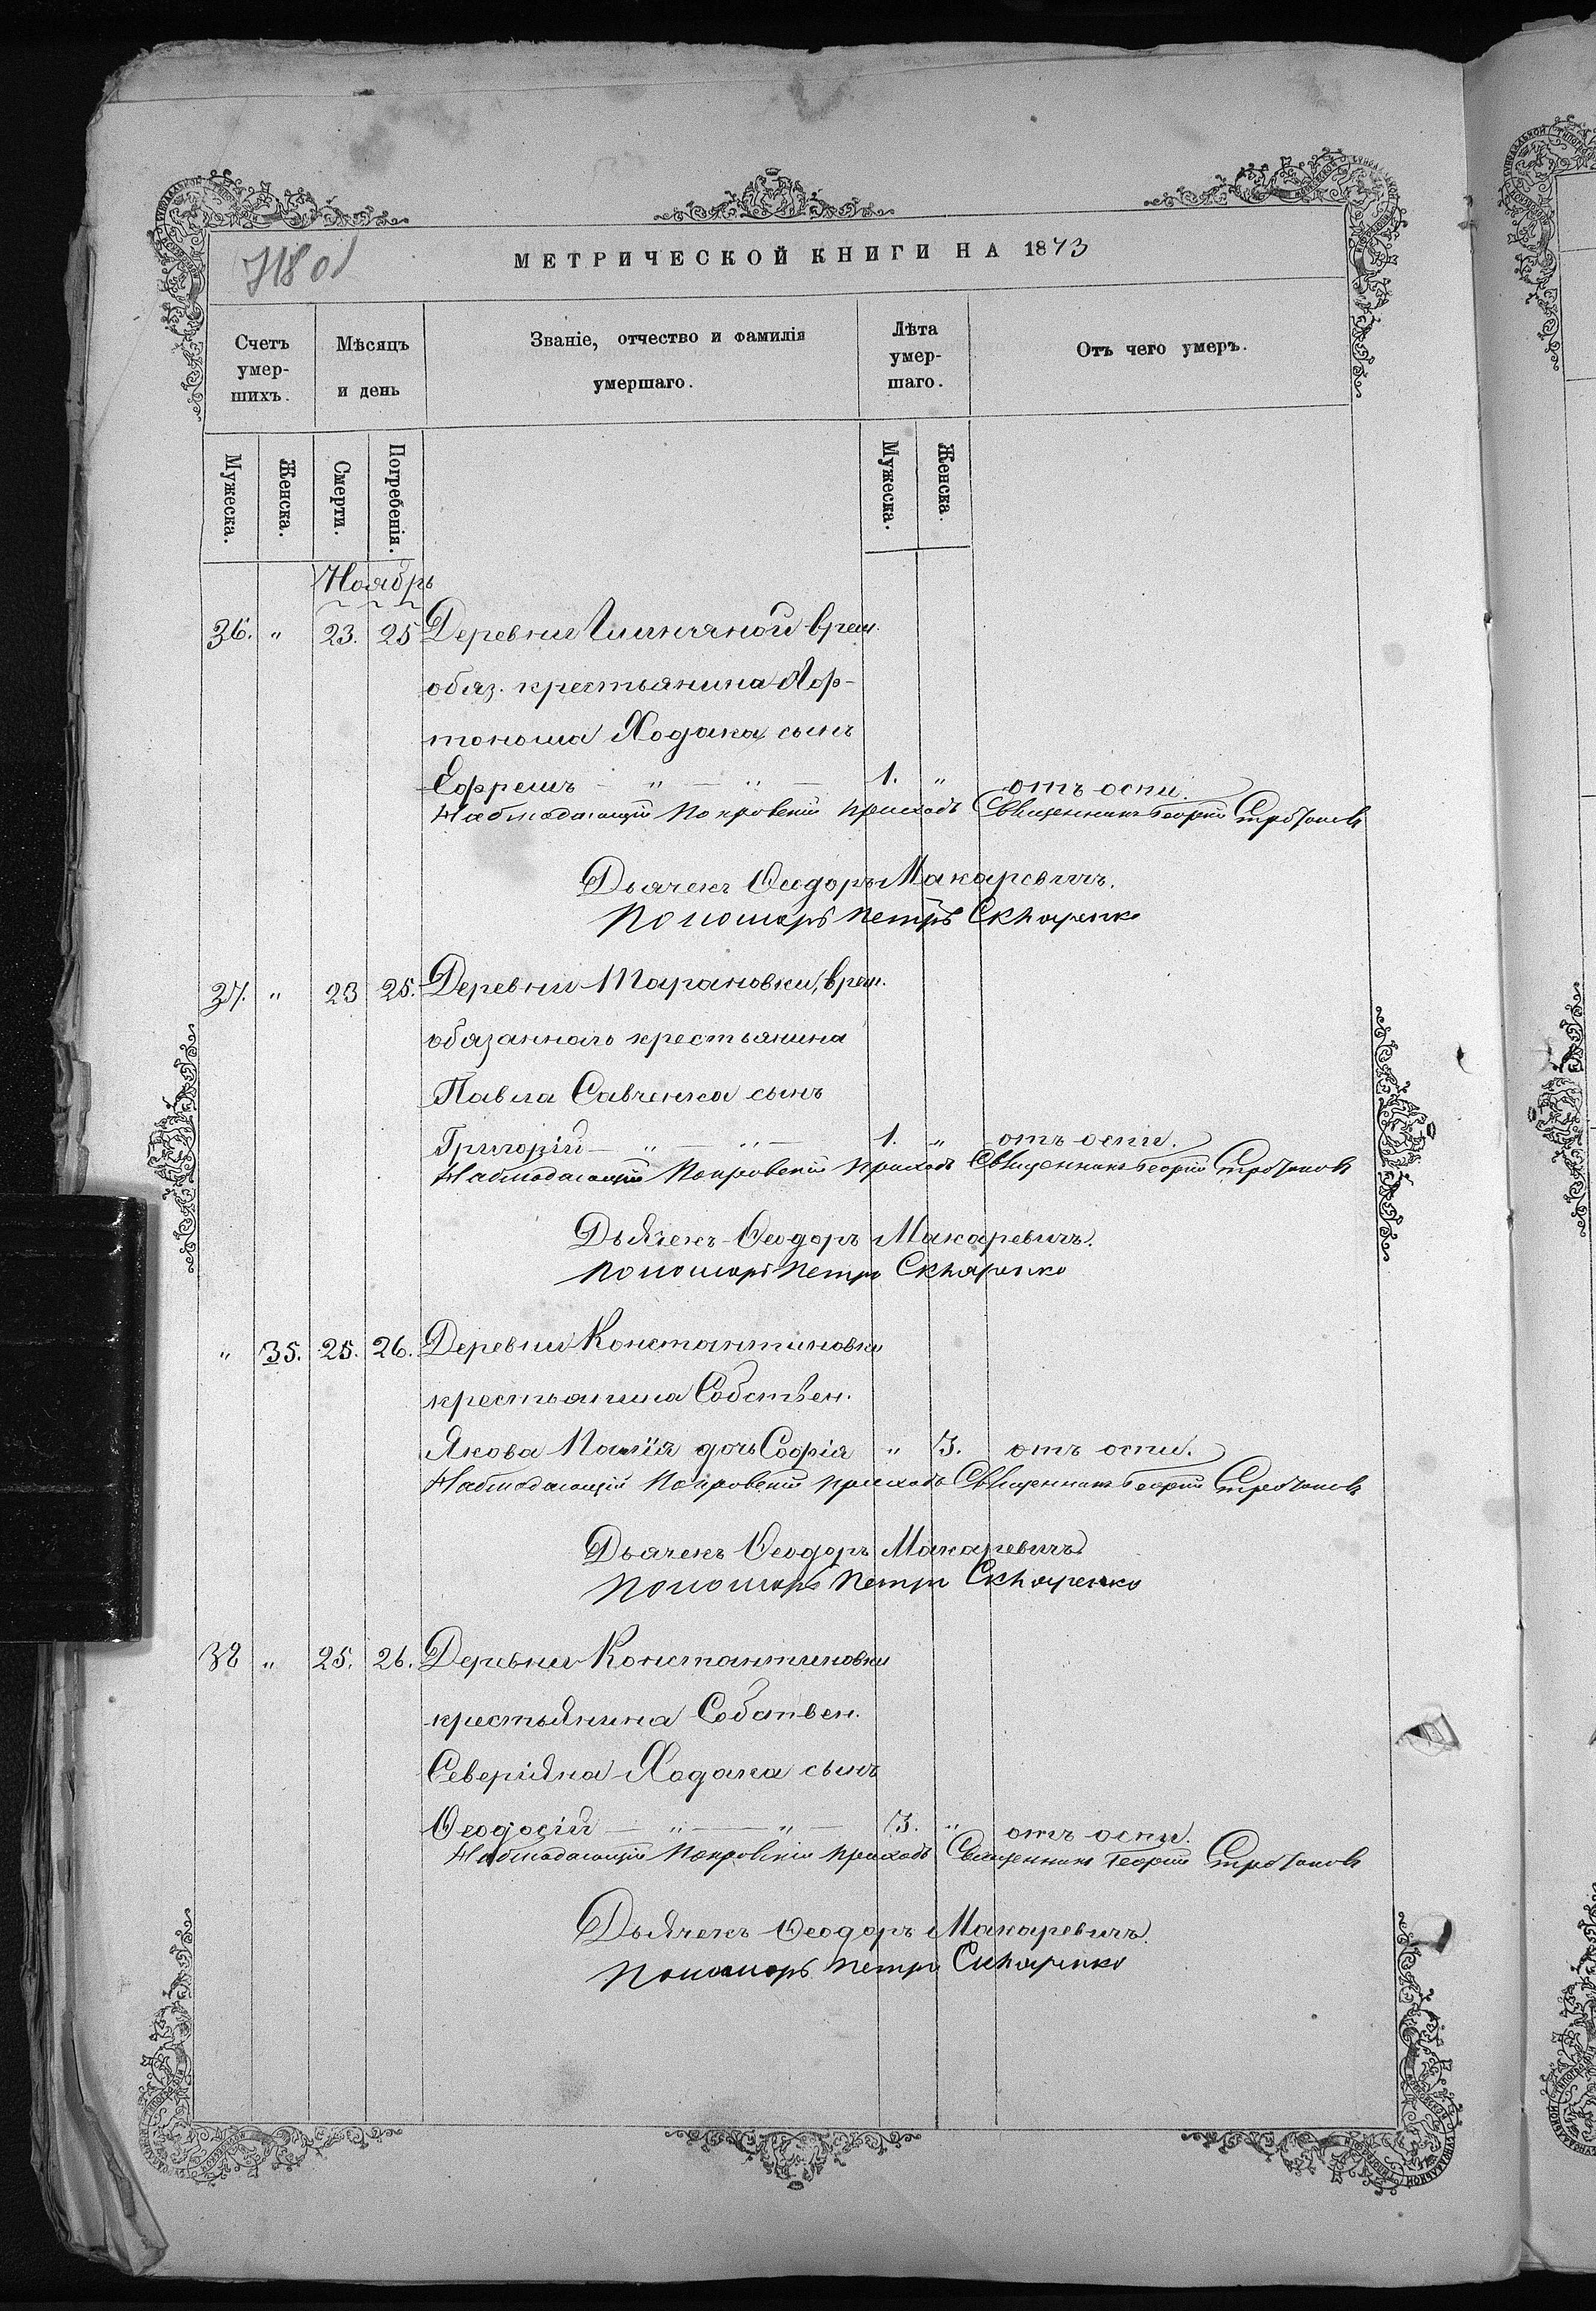 МЕТРИЧЕСКОЙ КНИГИ НА 1873
Счетъ умер-шихъ.
Мѣсяцъ и день
Званіе, отчество и фамилія умершаго.
Лѣта умер-шаго.
Отъ чего умеръ.
Мужеска. Женска. Смерти. Погребенія. Мужеска. Женска.
Ноябрь
36. " 23. 25 Деревни врем.
обяз. крестьянина
Ходака сынъ
Ефремъ — " — " — 1. " отъ оспи.
Наблюдающій Покровскій приходъ Священникъ Георгій
Дьячекъ Ѳеодоръ Макаревичъ.
Пономарь Петръ Скляренко
37. " 23 25. Деревни Тарановки, врем.
обязаннаго крестьянина
Павла Савченка сынъ
Григорій — " " — 1. " отъ оспи.
Наблюдающій Покровскій приходъ Священникъ Георгій
Дьячекъ Ѳеодоръ Макаревичъ.
Пономарь Петръ Скляренко
" 35. 25. 26. Деревни Константиновки
крестьянина Собствен.
Якова Палія дочь Софія " 3. отъ оспи.
Наблюдающій Покровскій приходъ Священникъ Георгій
Дьячекъ Ѳеодоръ Макаревичъ
Пономарь Петръ Скляренко
38 " 25. 26. Деревни Константиновки
крестьянина Собствен.
Северіяна Ходака сынъ
Ѳеодосій — " — " — 3. " отъ оспи.
Наблюдающій Покровскій приходъ Священникъ Георгій
Дьячекъ Ѳеодоръ Макаревичъ
Пономарь Петръ Скляренко